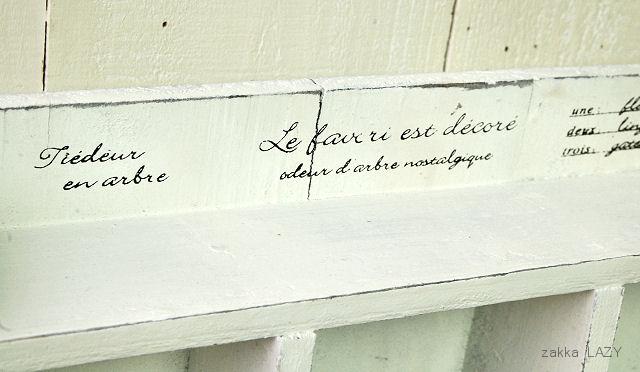 Tiédeur
en arbre
Le favori est décoré
odeur d'arbre nostalgique
une:
deus
trois:
zakka LAZY